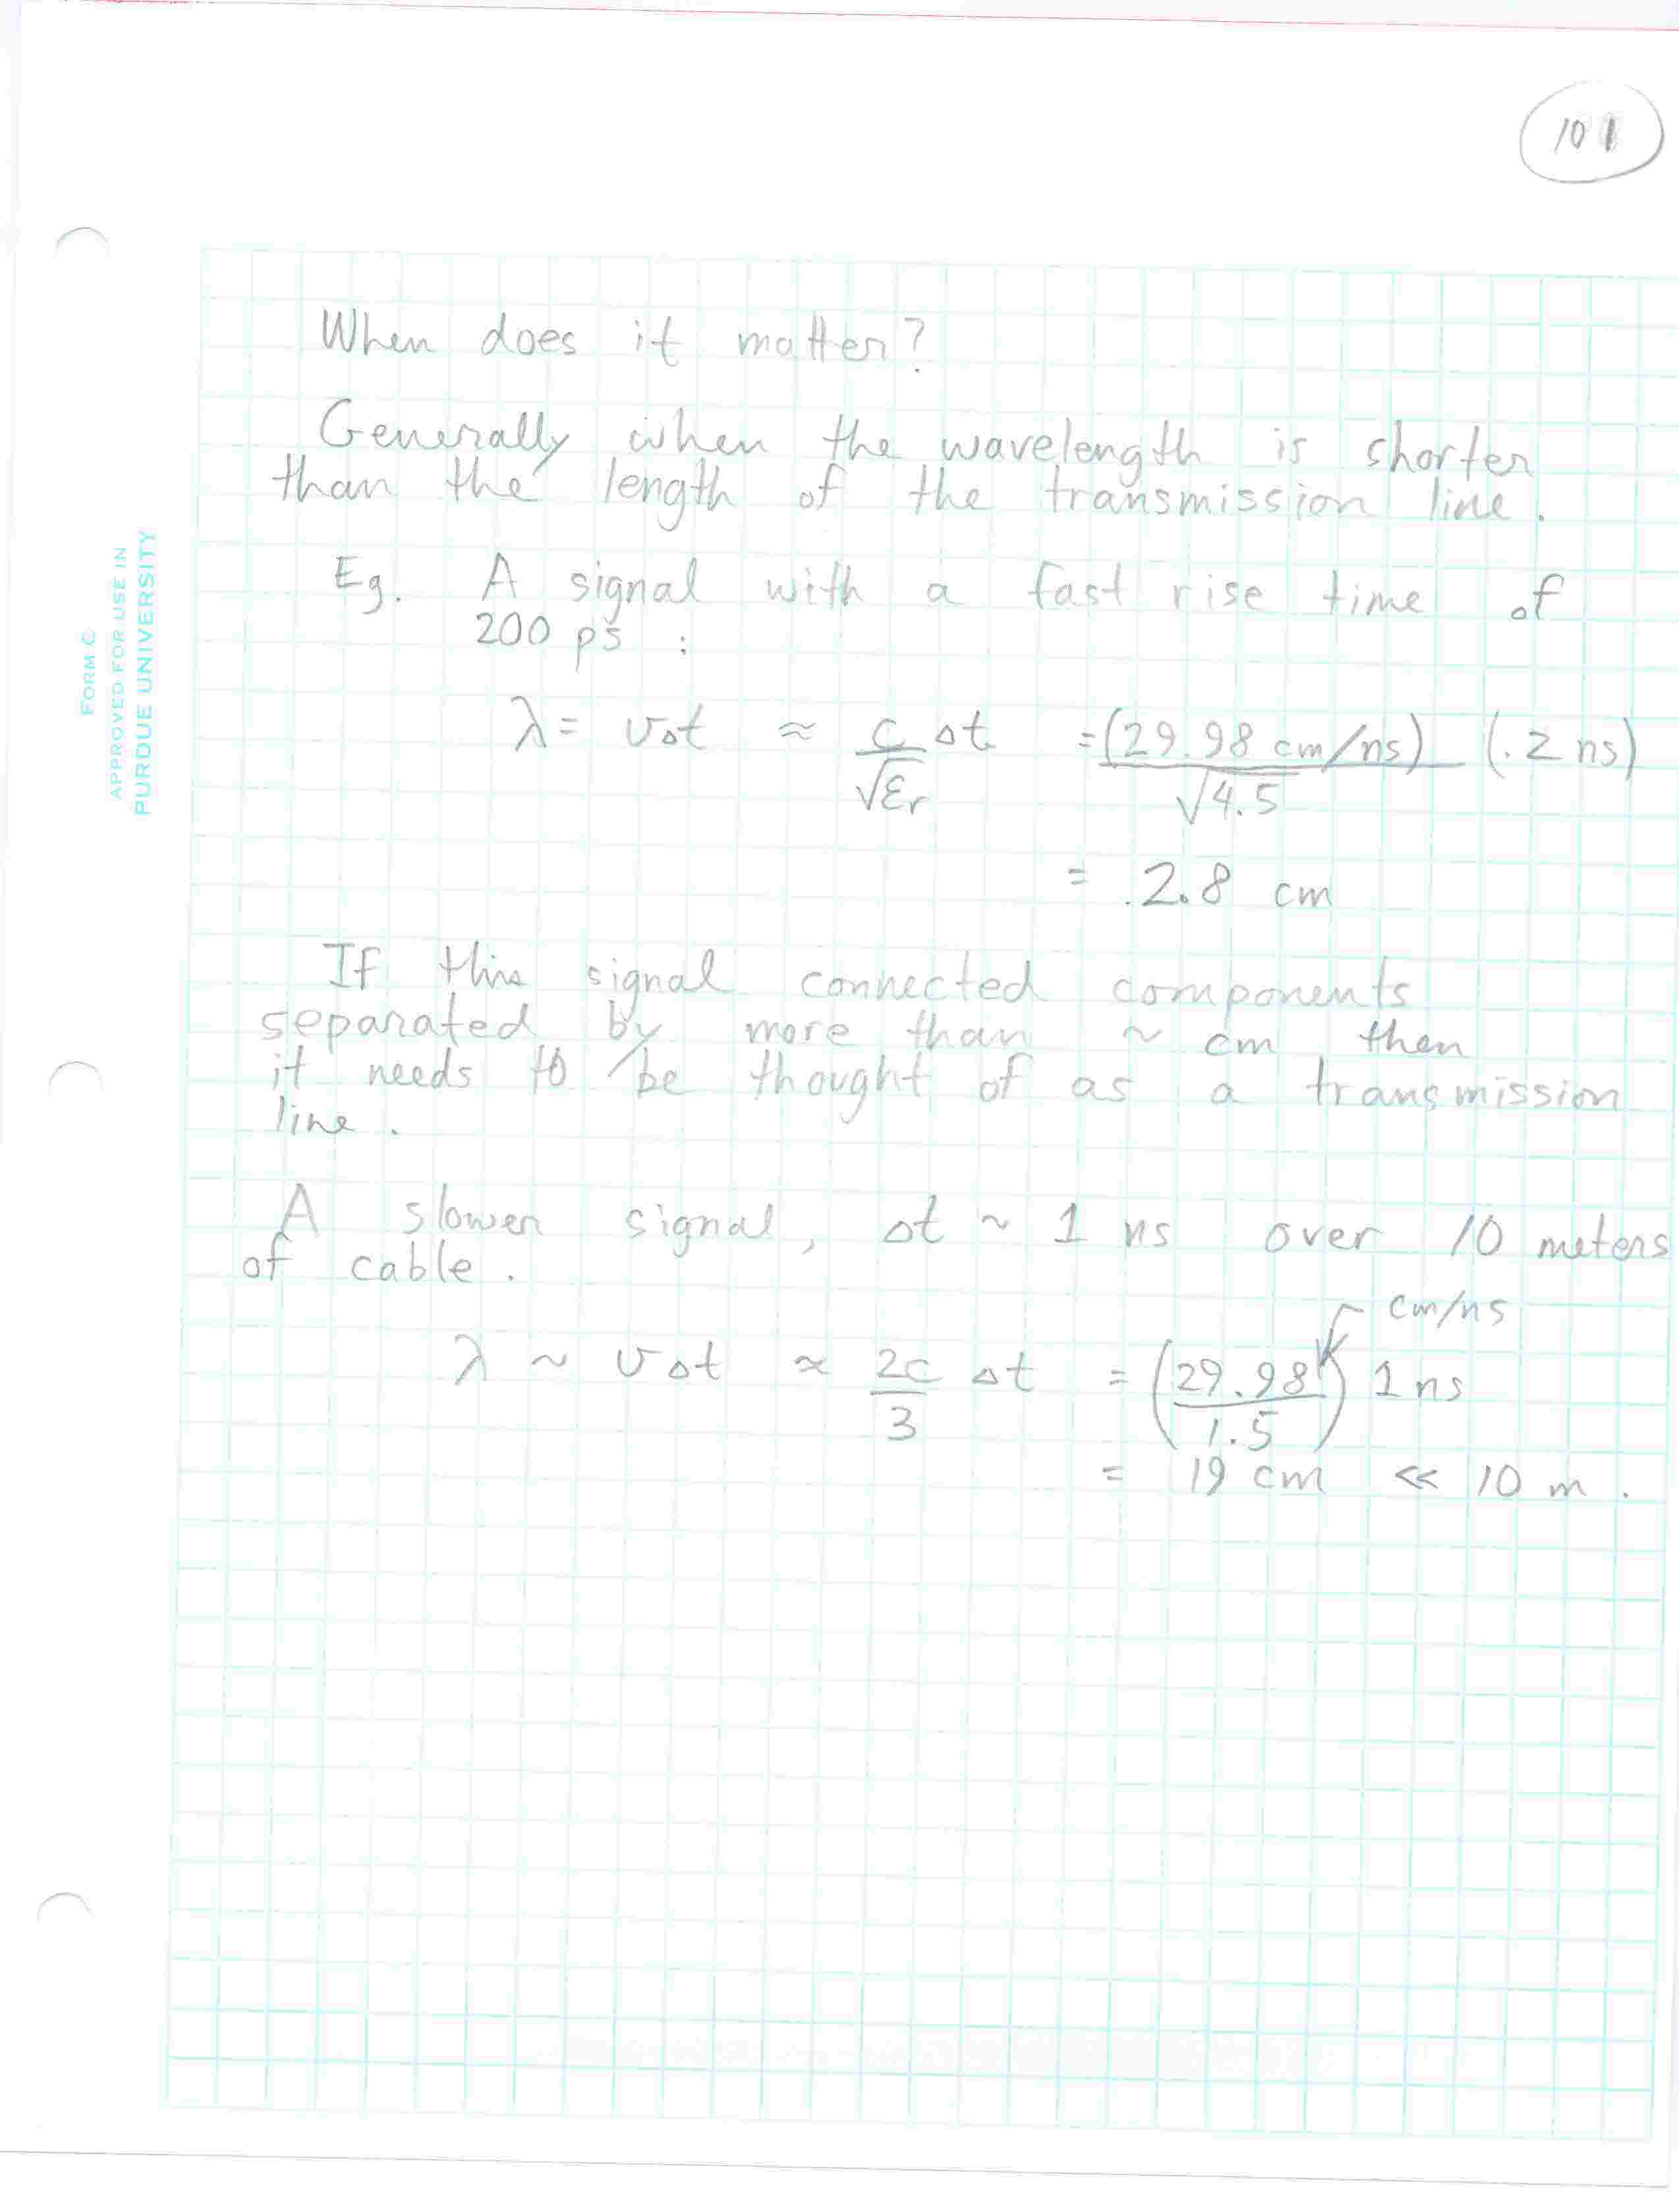 101
FORM C
APPROVED FOR USE IN
PURDUE UNIVERSITY
When does it matter?
Generally when the wavelength is shorter
than the length of the transmission line.
Eg. A signal with a fast rise time of
200 ps :
λ = vΔt ≈ c/√εr Δt = (29.98 cm/ns)/√4.5 (.2 ns)
= 2.8 cm
If this signal connected components
separated by more than ~ cm then
it needs to be thought of as a transmission
line.
A slower signal, Δt ~ 1 ns over 10 meters
of cable.
cm/ns
λ ~ vΔt ≈ 2c/3 Δt = (29.98/1.5) 1 ns
= 19 cm << 10 m.